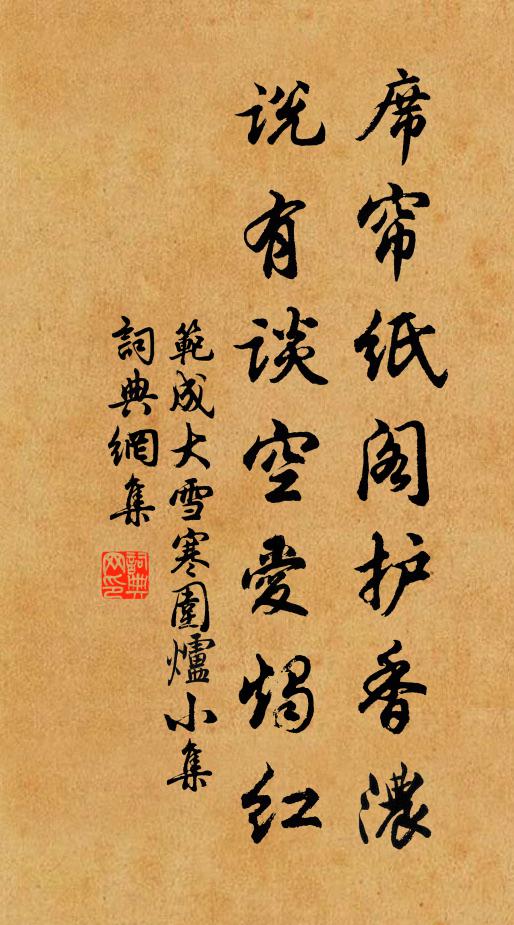 席帘纸阁护香濃
说有谈空爱烛红
範成大雪寒圍爐小集
詞典網集
詞典
网印